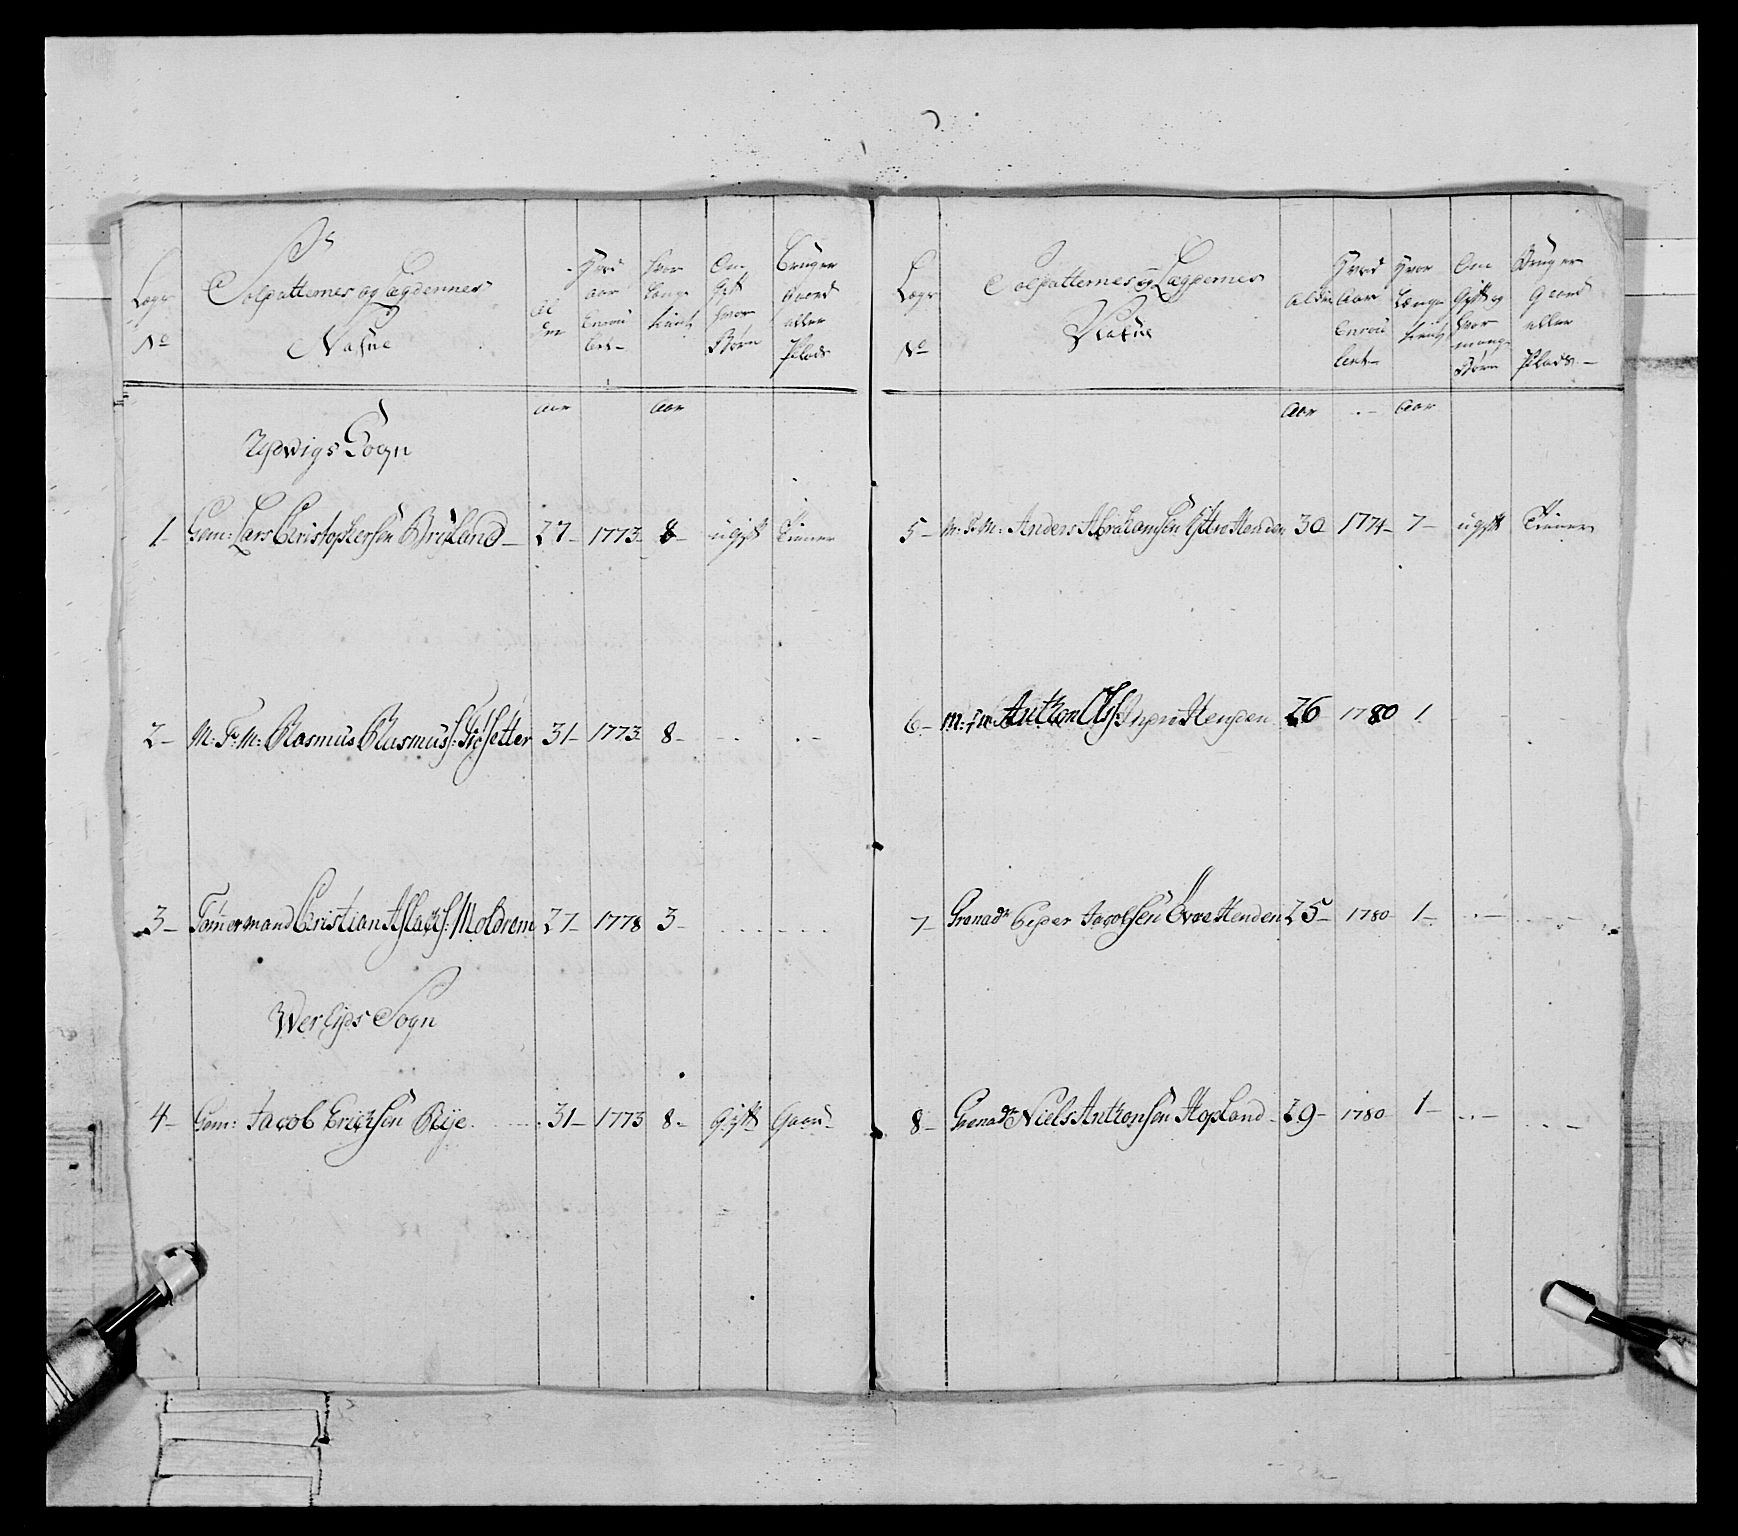 Lægs No
Soldatternes og Lægdernes Nafne
Al der
Hvad aar Enroulert
Hvor længe tient
Om Gift hvor Børn
Bruger Gaard eller Plads
aar aar
Sogn
1 Gem: Lars Christophersen Brýland 27 1773 8 ugift Tiener
2 M: F: M: Rasmus Rasmuss: 31 1773 8
3 Tømermand Christian Aslachs: Moldrem 27 1778 3
Sogn
4 Gem: Jacob Erichsen Rye 31 1773 8 Gift Gaard
Lægs No
Soldatternes og Lægdernes Nafne
Alder
Hvad Aar Enroulert
Hvor Længe tient
Om Gift og hvor mange Børn
Bruger Gaard eller Plads
Aar Aar
5 M: F: M: Anders Abrahamsen Yttre Henden 30 1774 7 ugift Tiener
6 M: F: M: Anthon Ols: Indre Henden 26 1780 1
7 Grenadr Peder Jacobsen Øvre Henden 25 1780 1
8 Grenadr Niels Anthonsen Hopland 29 1780 1